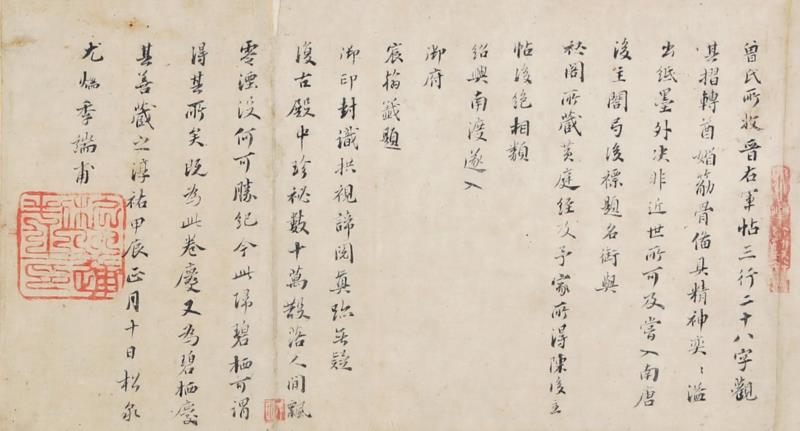 曾氏所收晉右軍帖三行二十八字觀
其摺轉遒媚筋骨備具精神奕〻溢
出紙墨外决非近世所可及嘗入南唐
後主閣局後標題名銜與
秘閣所藏黃庭經及予家所得陳後主
帖後絕相類
紹興南渡遂入
御府
宸翰籤題
御印封識拱視諦閱真跡無疑
復古殿中珍祕數十萬散落人間飄
零湮沒何可勝紀今此帰碧栖可謂
得其所矣既為此卷慶又為碧栖慶
其善藏之淳祐甲辰正月十日松泉
尤焴季端甫